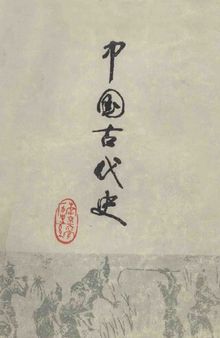 中国古代史